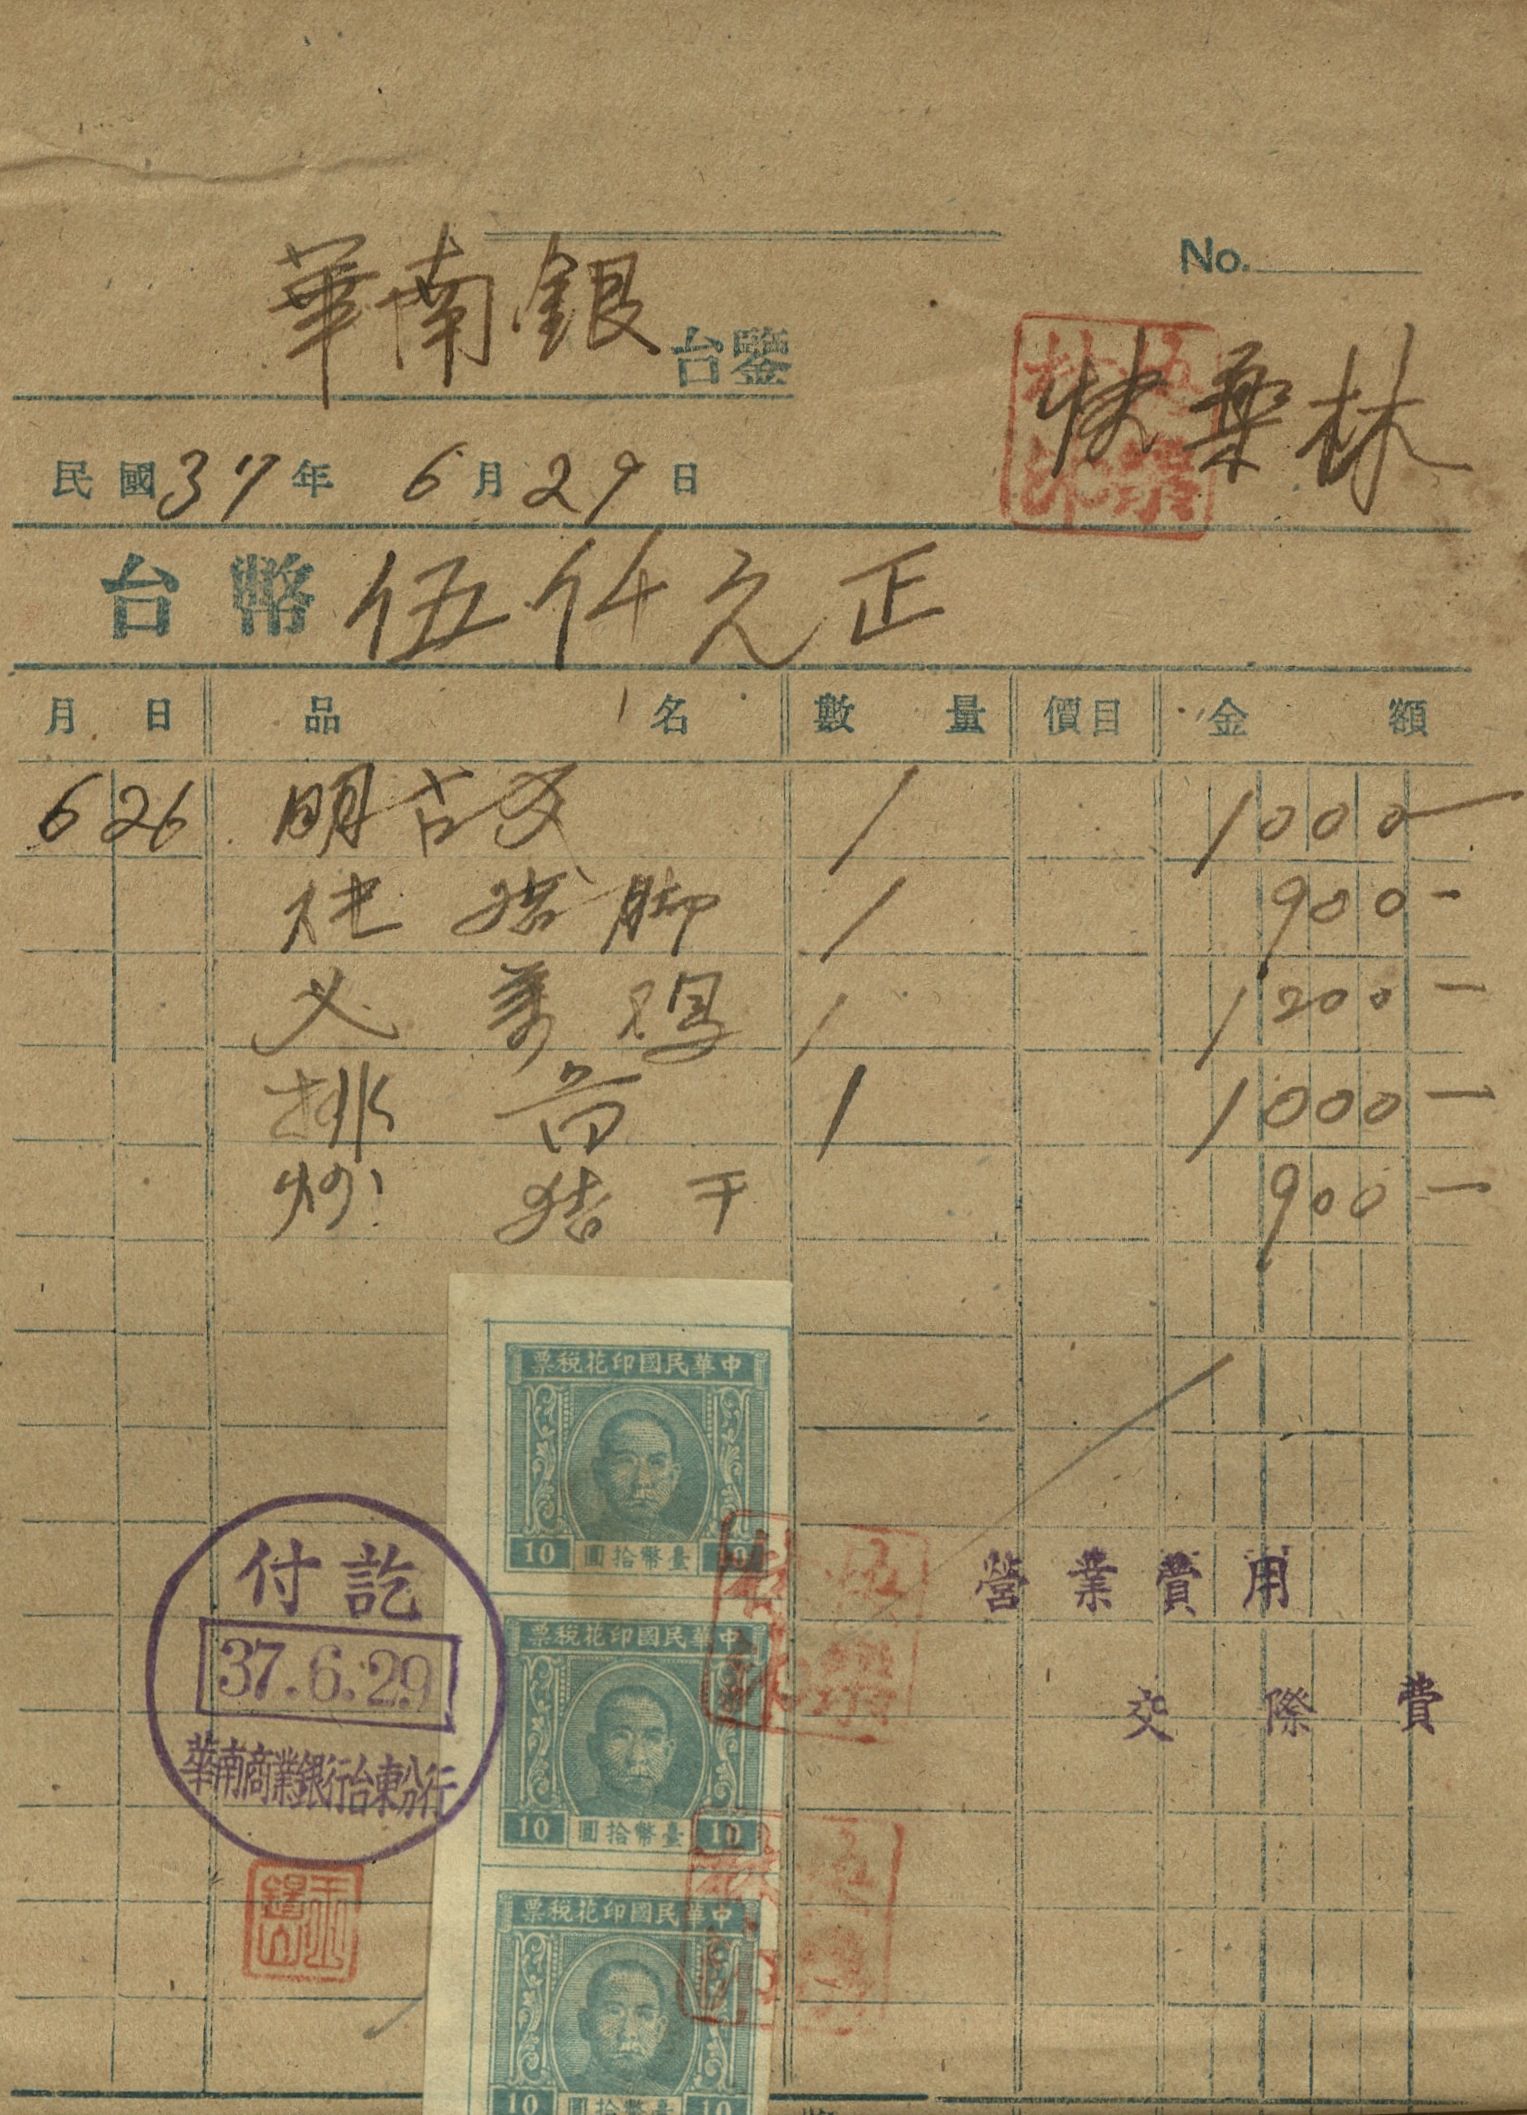 No.
華南銀 台鑒
快樂林
民國37年 6月29日
台幣 伍仟元正
月 日 品 名 數 量 價目 金 額
6 26 明古 1 1000-
猪脚 1 900-
1 1200-
排 1 1000-
炒 猪干 900-
票稅花印國民華中
10 圓拾幣臺 10
票稅花印國民華中
10 圓拾幣臺 10
票稅花印國民華中
10 圓拾幣臺 10
付訖
37.6.29
華南商業銀行台東分行
營業費用
交際費